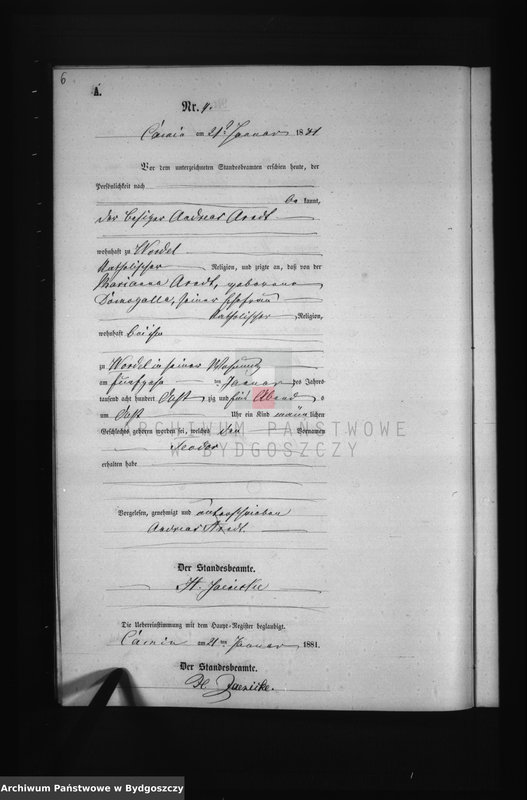 6
A.
Nr. 4.
Camin am 21. Januar 1881
Vor dem unterzeichneten Standesbeamten erschien heute, der
Persönlichkeit nach
be kannt,
der Besitzer Andreas Arndt
wohnhaft zu Wordel
katholischer Religion, und zeigte an, daß von der
Marianna Arndt, geborene
Domogalla, seiner Ehefrau
katholischer Religion,
wohnhaft bei ihm
zu Wordel in seiner Wohnung
am fünfzehn ten Januar des Jahres
tausend acht hundert Acht zig und Abend s
um Acht Uhr ein Kind männ lichen
Geschlechts geboren worden sei, welches den Vornamen
Teodor
erhalten habe
Vorgelesen, genehmigt und unterschrieben
Andreas Arndt.
Der Standesbeamte.
H. Jaenicke
Die Uebereinstimmung mit dem Haupt-Register beglaubigt.
Camin am 21 ten Januar 1881.
Der Standesbeamte.
H. Jaenicke.
ARCHIWUM PAŃSTWOWE
W BYDGOSZCZY
Archiwum Państwowe w Bydgoszczy